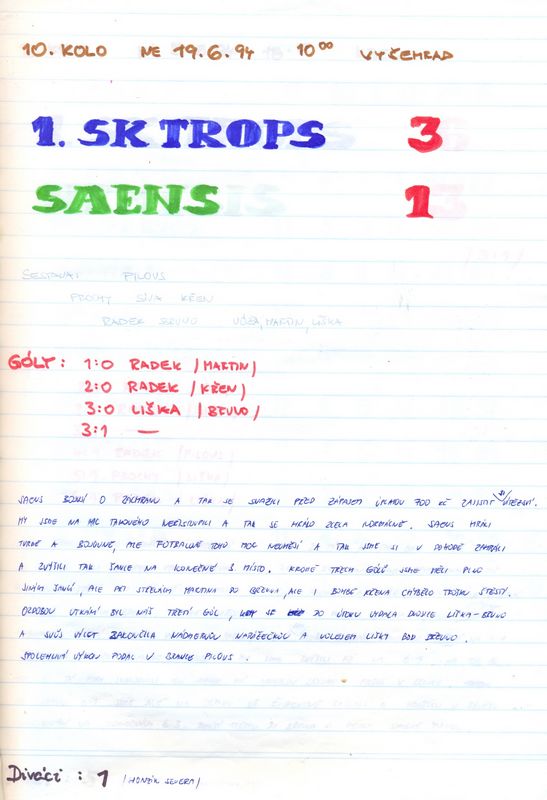 10. KOLO NE 19.6.94 10⁰⁰ VYŠEHRAD
1. SK TROPS 3
SAENS 1
SESTAVA: PILOUS
PROCHY, SÍVA KŘEN
RADEK BRUNO VÓŽA, MARTIN, LIŠKA
GÓLY: 1:0 RADEK /MARTIN/
2:0 RADEK /KŘEN/
3:0 LIŠKA /BRUNO/
3:1 —
SAENS BOJUJÍ O ZÁCHRANU A TAK SE SNAŽILI PŘED ZÁPASEM ÚPLATOU 700 KČ ZAJISTIT SI VÍTĚZSTVÍ.
MY JSME NA NIC TAKOVÉHO NEPŘISTOUPILI A TAK SE HRÁLO ZCELA NORMÁLNĚ. SAENS HRÁLI
TVRDĚ A BOJOVNĚ, ALE FOTBALOVĚ TOHO MOC NEUMĚJÍ A TAK JSME SI V POHODĚ ZAHRÁLI
A ZVÝŠILI TAK ŠANCE NA KONEČNÉ 3. MÍSTO. KROMĚ TŘECH GÓLŮ JSME MĚLI PLNO
JINÝCH ŠANCÍ, ALE PŘI STŘELÁCH MARTINA DO BŘEVNA, ALE I BOMBĚ KŘENA CHYBĚLO TROŠKU ŠTĚSTÍ.
OZDOBOU UTKÁNÍ BYL NÁŠ TŘETÍ GÓL, KDY SE DO ÚTOKU VYDALA DVOJICE LIŠKA-BRUNO
A SVŮJ VÝLET ZAKONČILA NÁDHERNOU NARÁŽEČKOU A VOLEJEM LIŠKY POD BŘEVNO.
SPOLEHLIVÝ VÝKON PODAL V BRANCE PILOUS.
Diváci: 1 /HONZÍK SEVERA/